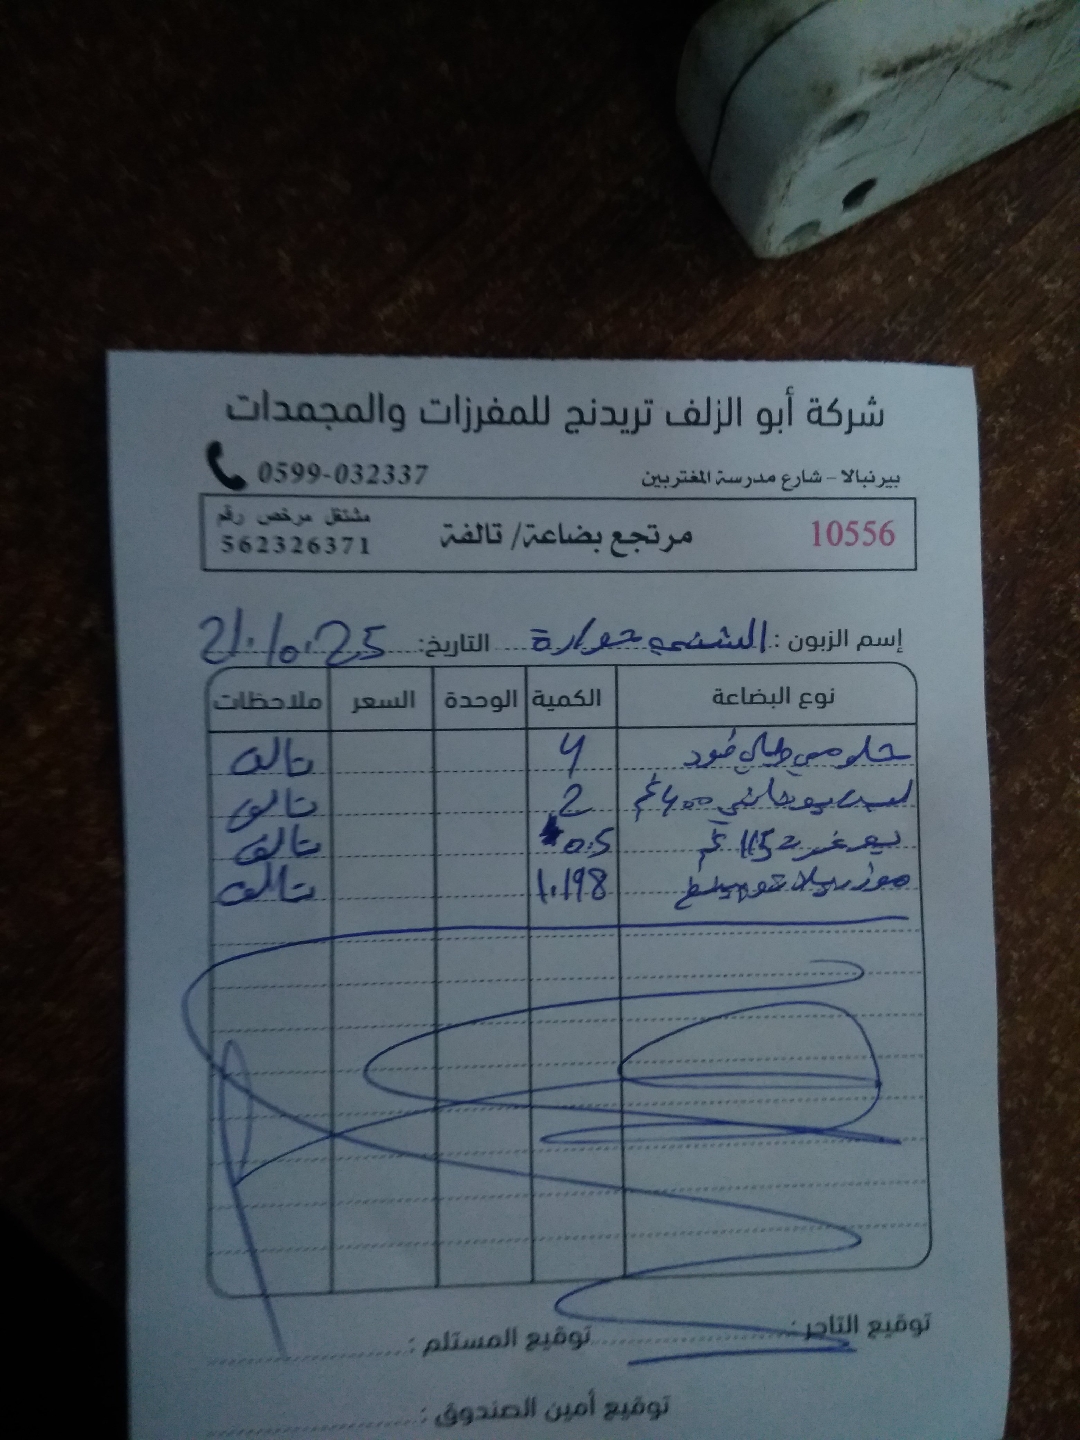 شركة أبو الزلف تريدنج للمفرزات والمجمدات
بيرنبالا - شارع مدرسة المغتربين 0599-032337
10556 مرتجع بضاعة/ تالفة مشتغل مرخص رقم
562326371
إسم الزبون : الشني حوارة التاريخ: 21.10.25
نوع البضاعة الكمية الوحدة السعر ملاحظات
حلومي فود 4 تالف
400غم 2 تالف
115 غم 0.5 تالف
موزريلا 1.198 تالف
توقيع التاجر : توقيع المستلم :
توقيع أمين الصندوق :